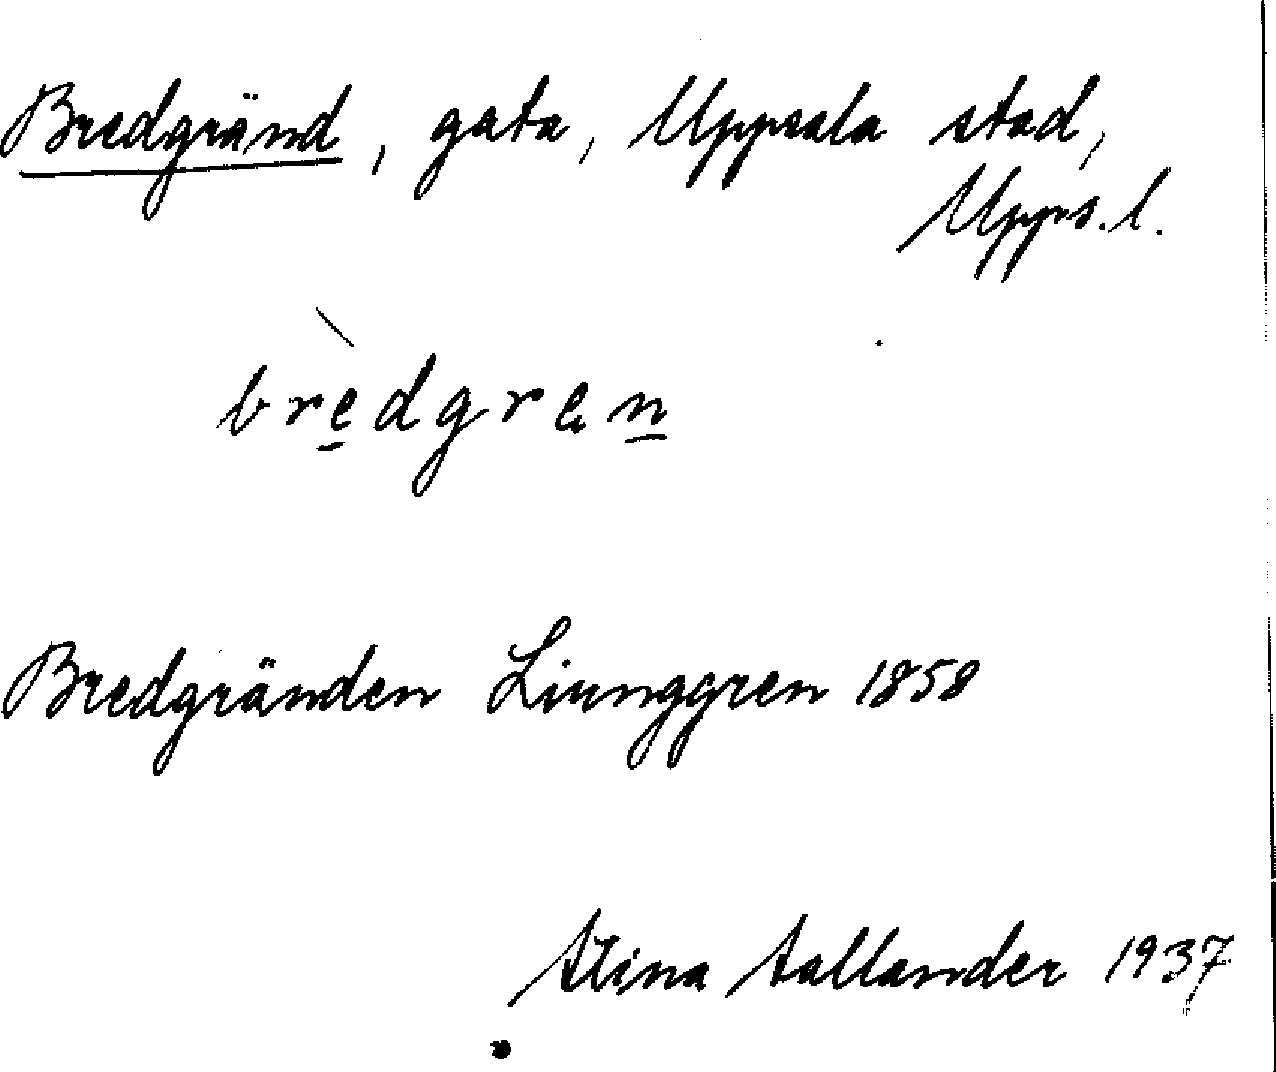 Bredgränd, gata, Uppsala stad,
Upps. l.
brèdgren
Bredgränden Liunggren 1858
Stina Sallander 1937